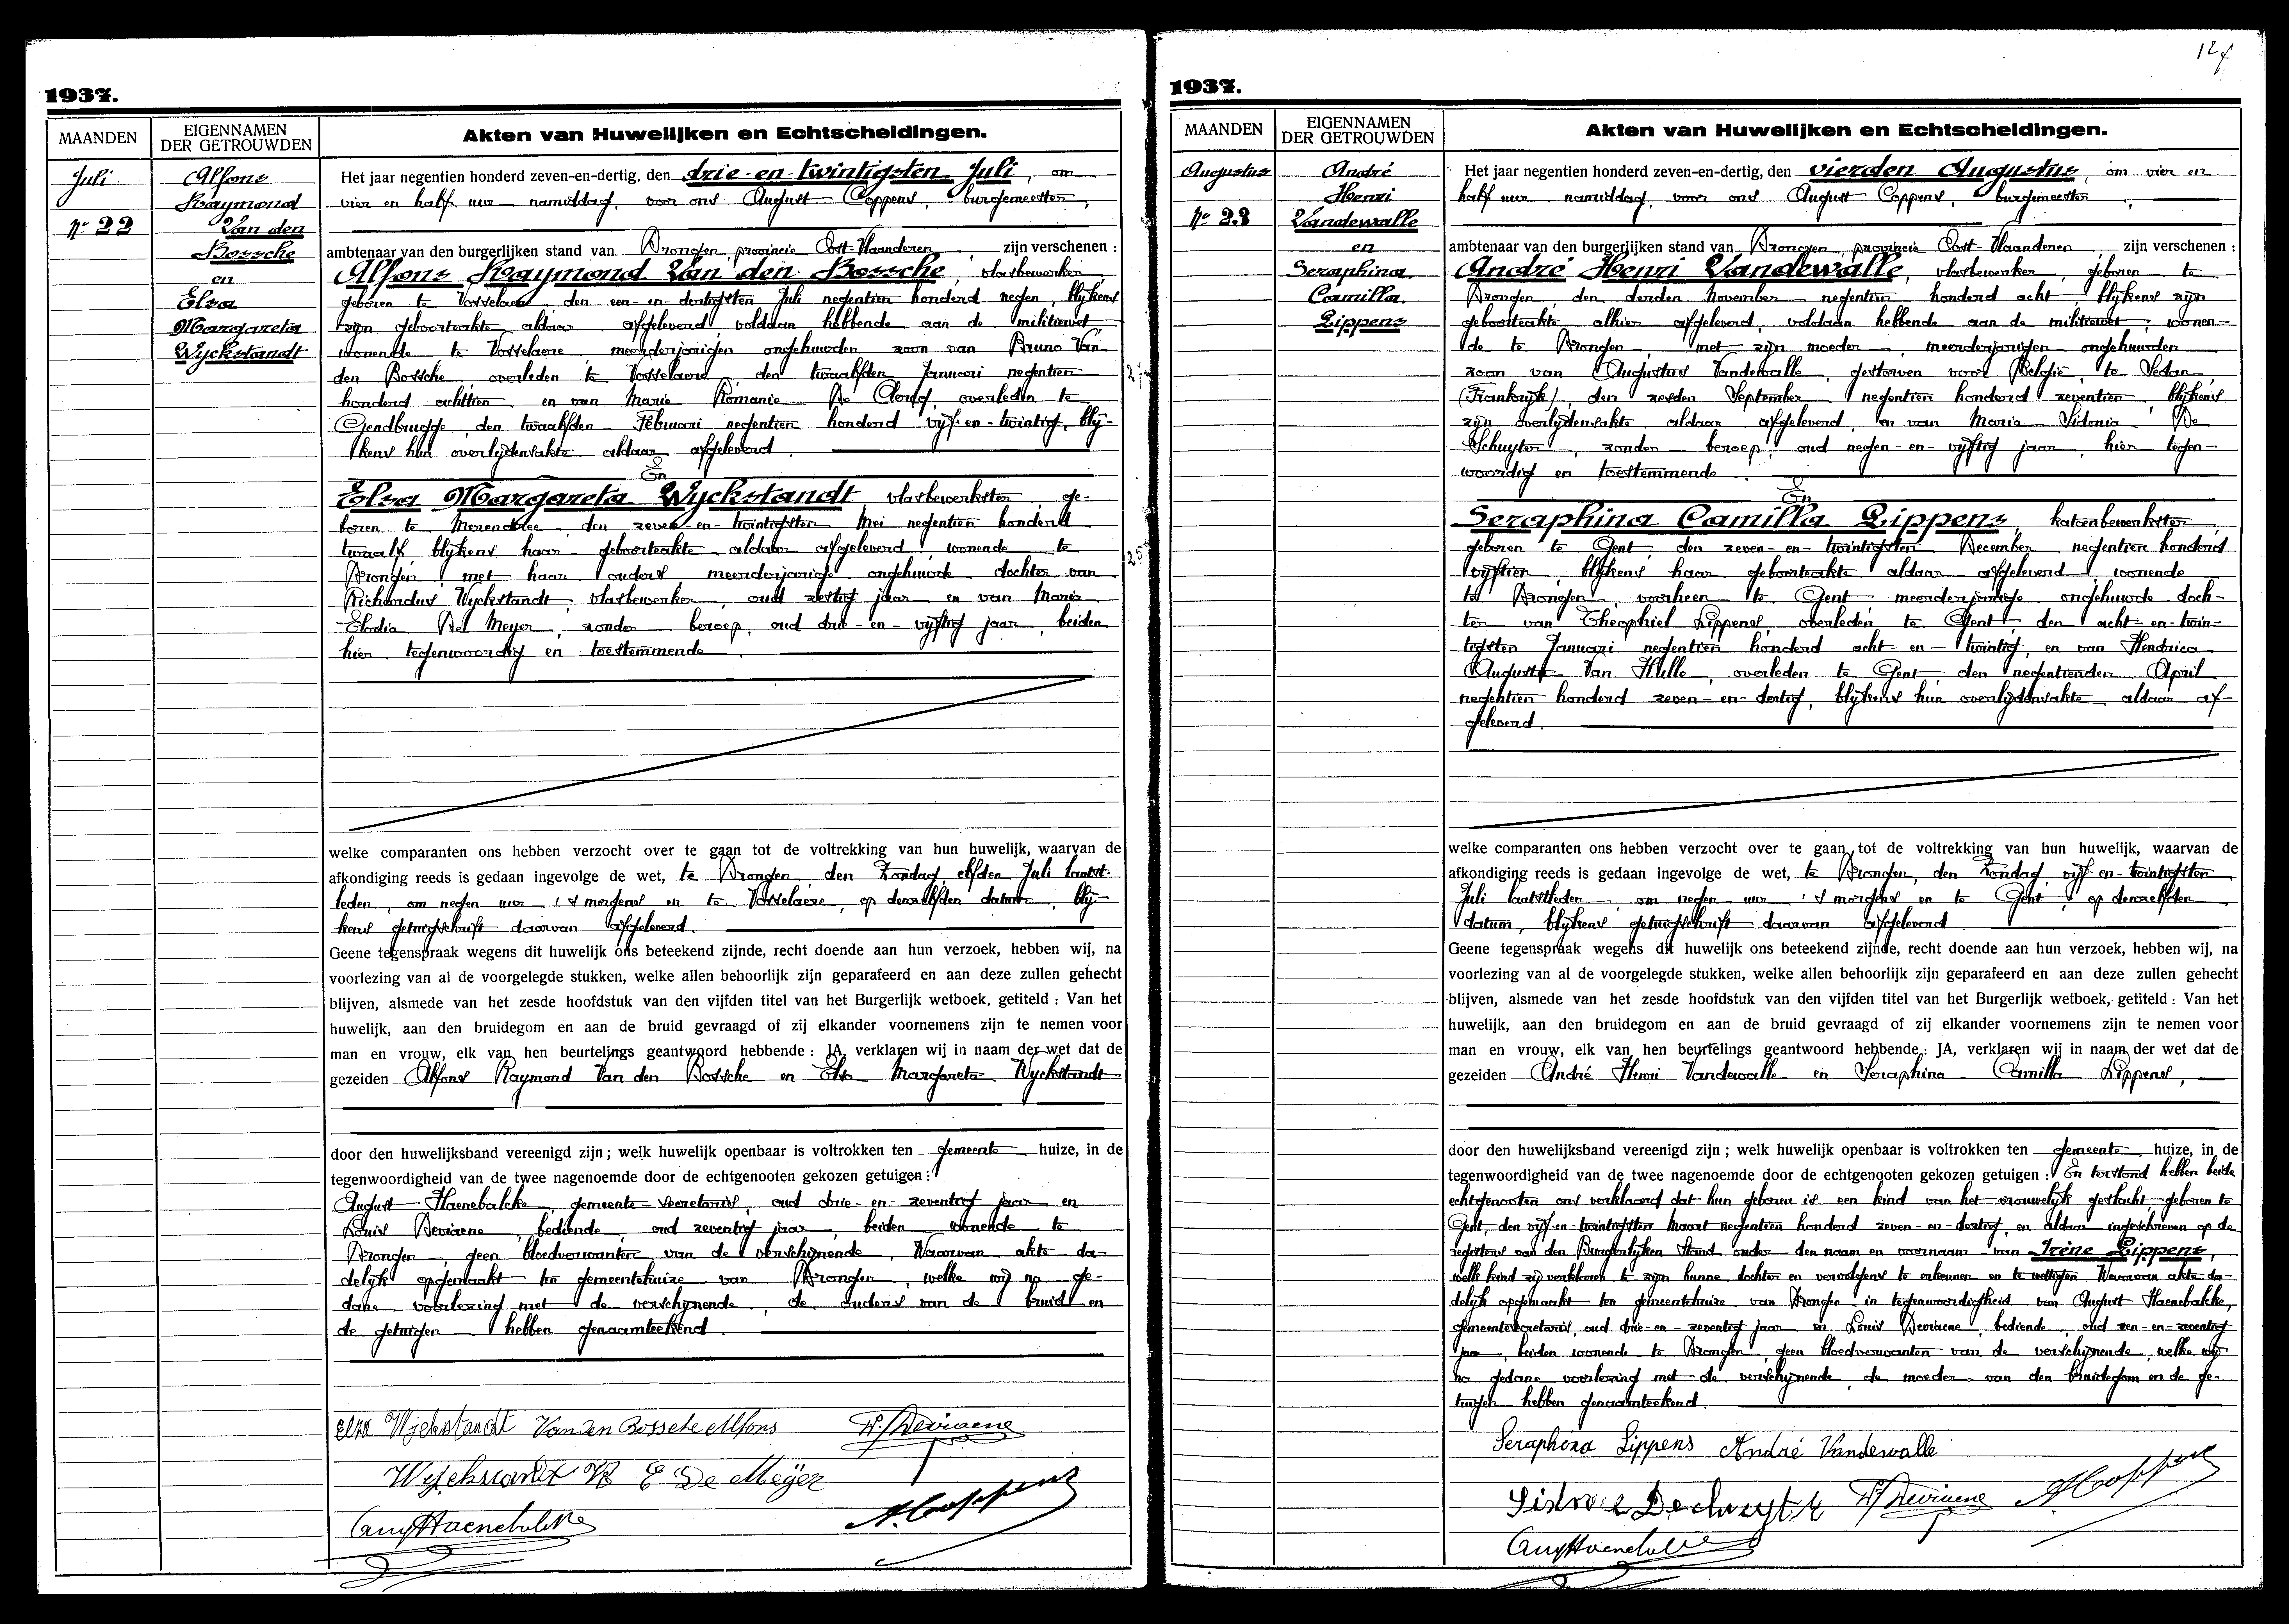 1937.
MAANDEN
EIGENNAMEN
DER GETROUWDEN
Akten van Huwelijken en Echtscheidingen.
Juli
No 22
Alfons
Raymond
Van den
Bossche
en
Elza
Margareta
Wyckstandt
Het jaar negentien honderd zeven-en-dertig, den drie-en-twintigsten Juli, om
vier en half uur namiddag, voor ons August Coppens, burgemeester,
ambtenaar van den burgerlijken stand van Drongen, provincie Oost-Vlaanderen, zijn verschenen :
Alfons Raymond Van den Bossche, vlasbewerker,
geboren te Vosselaere, den een-en-dertigsten Juli negentien honderd negen, blijkens
zijn geboorteakte aldaar afgeleverd, voldaan hebbende aan de militiewet,
wonende te Vosselaere, meerderjarigen ongehuwden zoon van Bruno Van
den Bossche, overleden te Vosselaere, den twaalfden Januari negentien
honderd achttien en van Marie Romanie De Clercq, overleden te
Gendbrugge, den twaalfden Februari negentien honderd vijf-en-twintig, blij-
kens hun overlijdensakte aldaar afgeleverd.
En
Elza Margareta Wyckstandt vlasbewerkster, ge-
boren te Merendree den zeven-en-twintigsten Mei negentien honderd
twaalf, blijkens haar geboorteakte aldaar afgeleverd, wonende te
Drongen, met haar ouders, meerderjarige ongehuwde dochter van
Richardus Wyckstandt, vlasbewerker, oud zestig jaar en van Maria
Elodia De Meyer, zonder beroep, oud drie-en-vijftig jaar, beiden
hier tegenwoordig en toestemmende.
welke comparanten ons hebben verzocht over te gaan tot de voltrekking van hun huwelijk, waarvan de
afkondiging reeds is gedaan ingevolge de wet, te Drongen, den Zondag, elfden Juli laatst-
leden, om negen uur 's morgens en te Vosselaere, op denzelfden datum, blij-
kens getuigschrift daarvan afgeleverd.
Geene tegenspraak wegens dit huwelijk ons beteekend zijnde, recht doende aan hun verzoek, hebben wij, na
voorlezing van al de voorgelegde stukken, welke allen behoorlijk zijn geparafeerd en aan deze zullen gehecht
blijven, alsmede van het zesde hoofdstuk van den vijfden titel van het Burgerlijk wetboek, getiteld : Van het
huwelijk, aan den bruidegom en aan de bruid gevraagd of zij elkander voornemens zijn te nemen voor
man en vrouw, elk van hen beurtelings geantwoord hebbende : JA, verklaren wij in naam der wet dat de
gezeiden Alfons Raymond Van den Bossche en Elza Margareta Wyckstandt
door den huwelijksband vereenigd zijn ; welk huwelijk openbaar is voltrokken ten gemeente huize, in de
tegenwoordigheid van de twee nagenoemde door de echtgenooten gekozen getuigen :
August Haenebalcke, gemeente-secretaris, oud drie-en-zeventig jaar en
Louis Deviaene, bediende, oud zeventig jaar, beiden wonende te
Drongen, geen bloedverwanten van de verschijnende. Waarvan akte da-
delijk opgemaakt ten gemeentehuize van Drongen, welke wij na ge-
dane voorlezing met de verschijnende, de ouders van de bruid en
de getuigen hebben genaamteekend.
Elza Wyckstandt Van den Bossche Alfons
E De Meÿer
A. Coppens
127
1937.
MAANDEN
EIGENNAMEN
DER GETROUWDEN
Akten van Huwelijken en Echtscheidingen.
Augustus
No 23
André
Henri
Vandewalle
en
Seraphina
Camilla
Lippens
Het jaar negentien honderd zeven-en-dertig, den vierden Augustus, om vier en
half uur namiddag, voor ons August Coppens, burgemeester,
ambtenaar van den burgerlijken stand van Drongen, provincie Oost-Vlaanderen, zijn verschenen :
André Henri Vandewalle, vlasbewerker, geboren te
Drongen, den derden November negentien honderd acht, blijkens zijn
geboorteakte alhier afgeleverd, voldaan hebbende aan de militiewet, wonen-
de te Drongen, met zijn moeder, meerderjarigen ongehuwden
zoon van Augustus Vandewalle, gestorven voor België, te Sedan,
(Frankrijk), den zesden September negentien honderd zeventien, blijkens
zijn overlijdensakte aldaar afgeleverd, en van Maria Sidonia De
Schuyter, zonder beroep, oud negen-en-vijftig jaar, hier tegen-
woordig en toestemmende.
En
Seraphina Camilla Lippens, katoenbewerkster,
geboren te Gent, den zeven-en-twintigsten December negentien honderd
vijftien, blijkens haar geboorteakte aldaar afgeleverd, wonende
te Drongen, voorheen te Gent meerderjarige ongehuwde doch-
ter van Theophiel Lippens, overleden te Gent, den acht-en-twin-
tigsten Januari negentien honderd acht-en-twintig, en van Hendrica
Augusta Van Hulle, overleden te Gent den negentienden April
negentien honderd zeven-en-dertig, blijkens hun overlijdensakte aldaar af-
geleverd.
welke comparanten ons hebben verzocht over te gaan tot de voltrekking van hun huwelijk, waarvan de
afkondiging reeds is gedaan ingevolge de wet, te Drongen, den Zondag, vijf-en-twintigsten
Juli laatstleden, om negen uur 's morgens en te Gent, op denzelfden
datum, blijkens getuigschrift daarvan afgeleverd.
Geene tegenspraak wegens dit huwelijk ons beteekend zijnde, recht doende aan hun verzoek, hebben wij, na
voorlezing van al de voorgelegde stukken, welke allen behoorlijk zijn geparafeerd en aan deze zullen gehecht
blijven, alsmede van het zesde hoofdstuk van den vijfden titel van het Burgerlijk wetboek, getiteld : Van het
huwelijk, aan den bruidegom en aan de bruid gevraagd of zij elkander voornemens zijn te nemen voor
man en vrouw, elk van hen beurtelings geantwoord hebbende : JA, verklaren wij in naam der wet dat de
gezeiden André Henri Vandewalle en Seraphina Camilla Lippens,
door den huwelijksband vereenigd zijn ; welk huwelijk openbaar is voltrokken ten gemeente huize, in de
tegenwoordigheid van de twee nagenoemde door de echtgenooten gekozen getuigen : En terstond hebben beide
echtgenooten ons verklaard dat hun geboren is een kind van het vrouwelijk geslacht geboren te
Gent, den vijf-en-twintigsten Maart negentien honderd zeven-en-dertig, en aldaar ingeschreven op de
registers van den Burgerlijken Stand onder den naam en voornaam van Irène Lippens,
welk kind zij verklaren te zijn hunne dochter en vervolgens te erkennen en te wettigen. Waarvan akte da-
delijk opgemaakt ten gemeentehuize van Drongen in tegenwoordigheid van August Haenebalcke,
gemeentesecretaris, oud drie-en-zeventig jaar en Louis Deviaene, bediende, oud een-en-zeventig
jaar, beiden wonende te Drongen, geen bloedverwanten van de verschijnende, welke wij
na gedane voorlezing met de verschijnende, de moeder van den bruidegom en de ge-
tuigen hebben genaamteekend.
Seraphina Lippens André Vandewalle
A Coppens